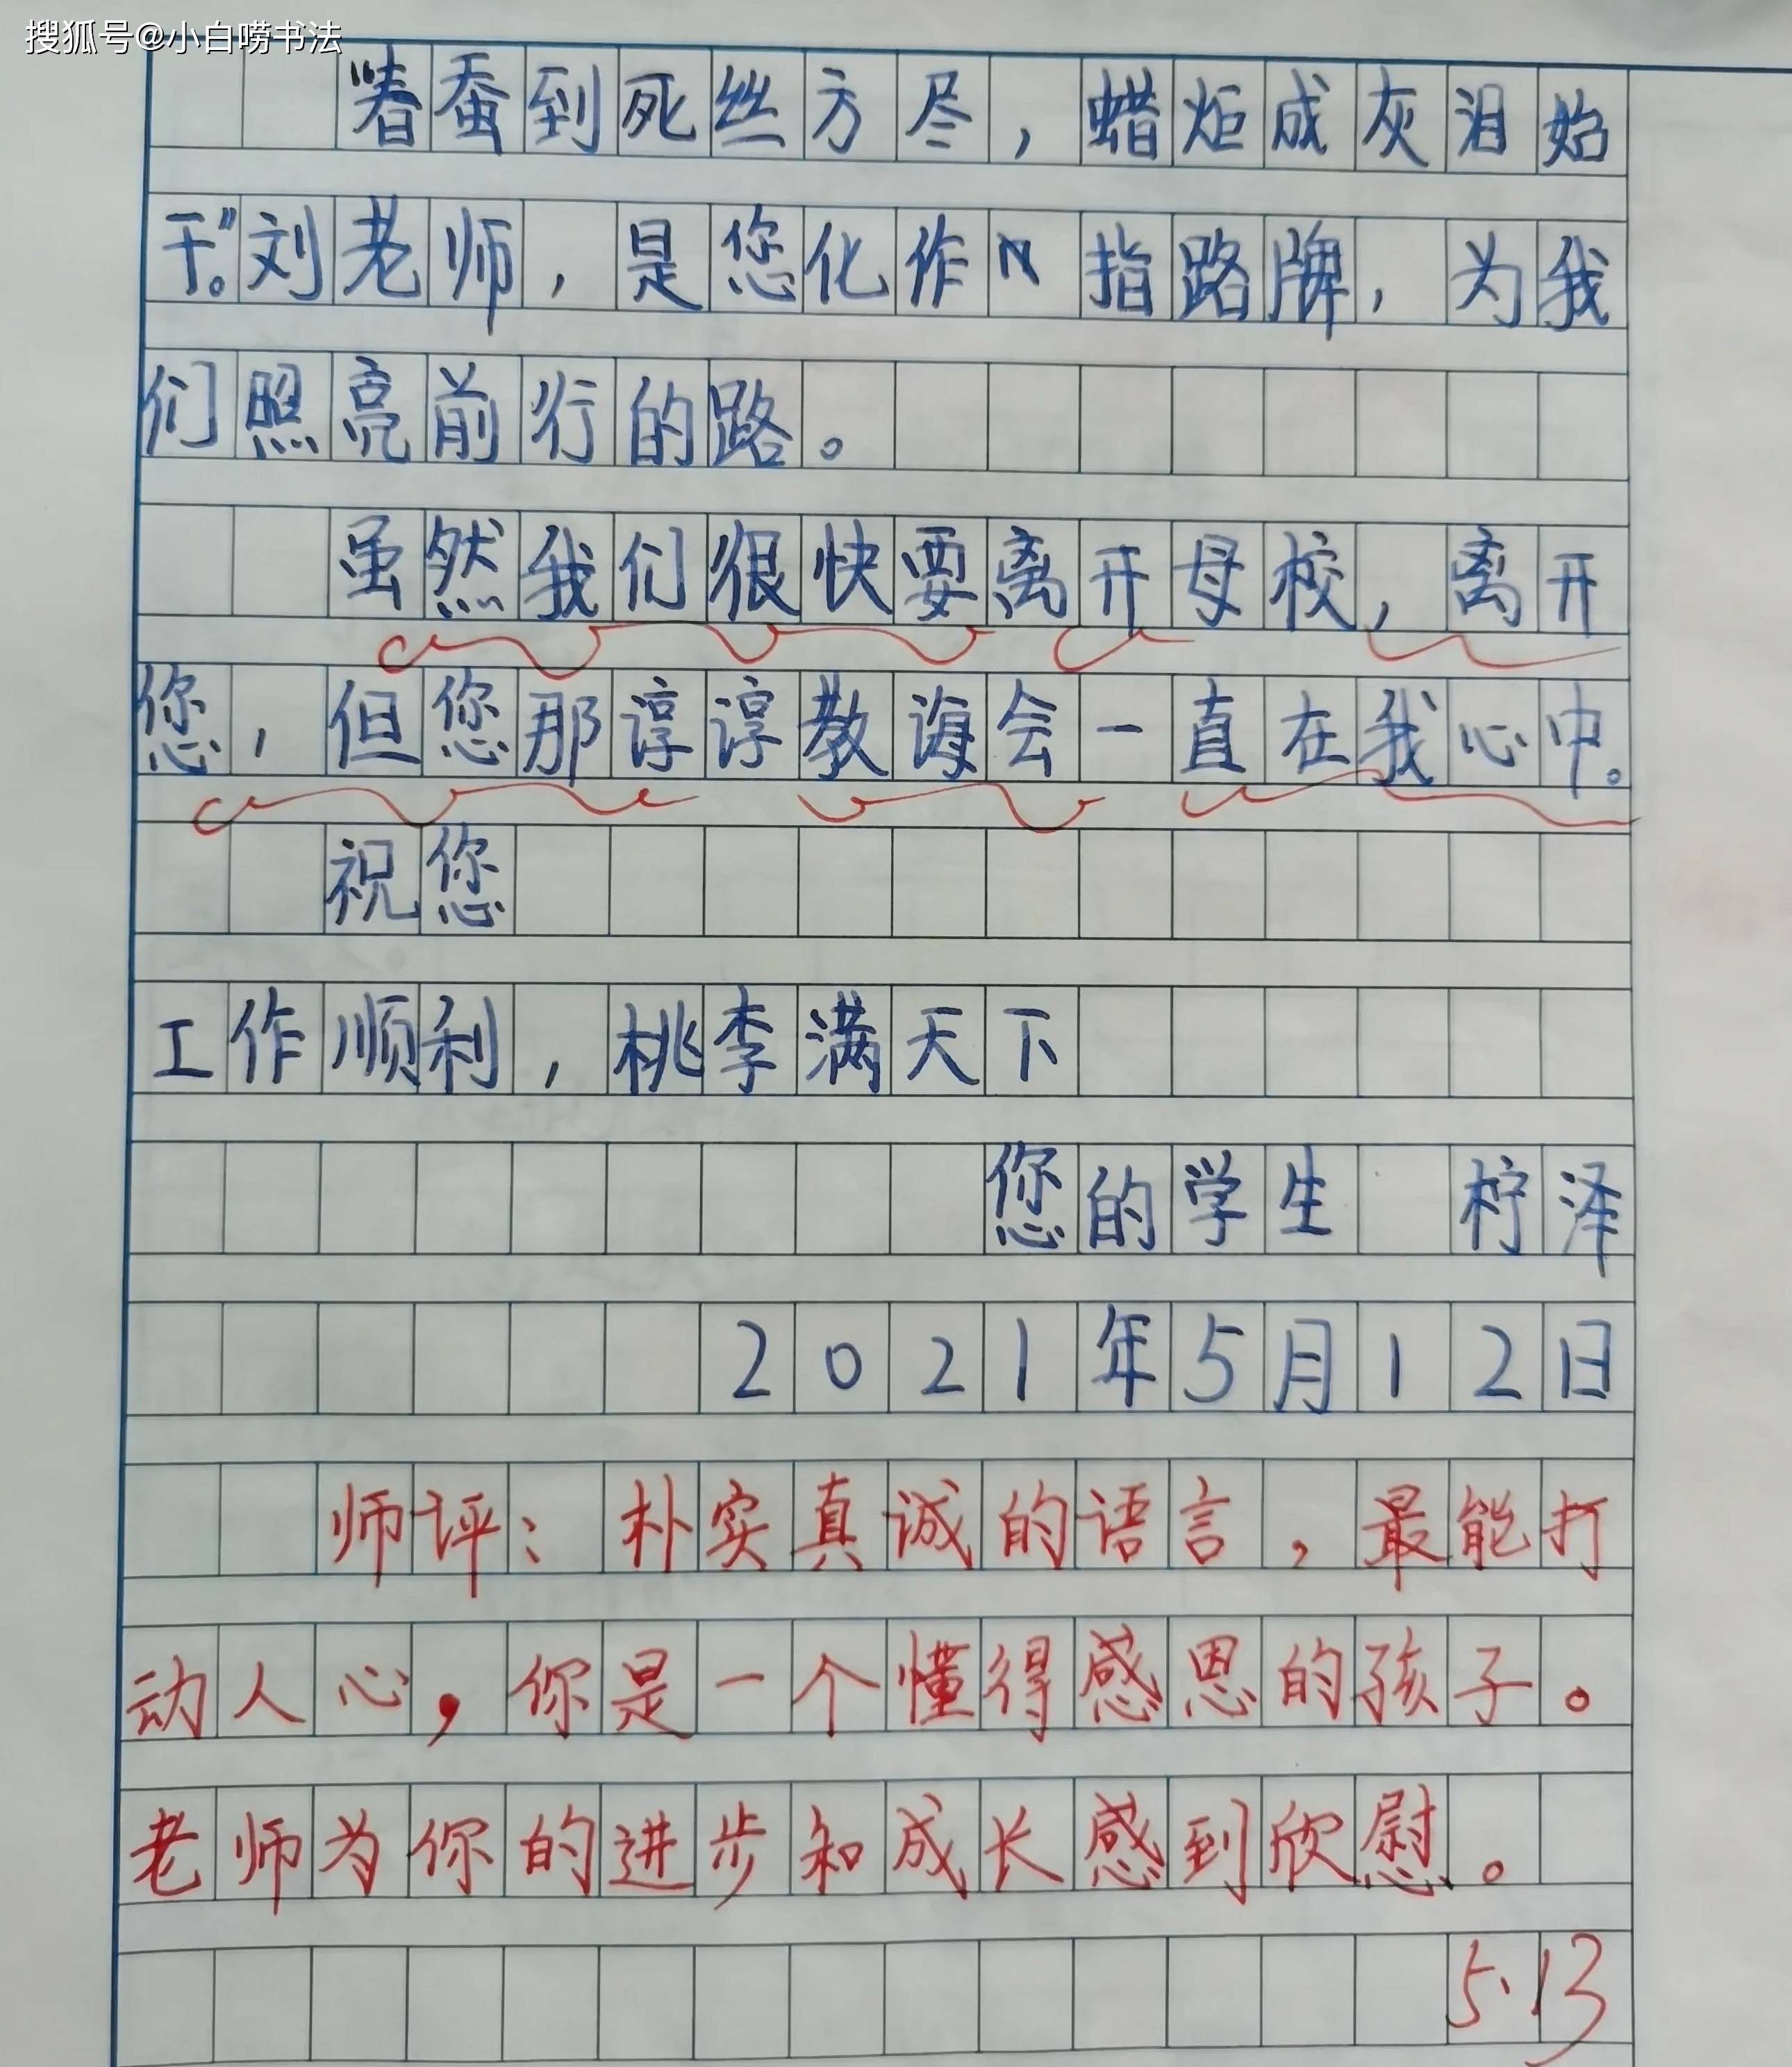 搜狐号@小白唠书法
“春蚕到死丝方尽，蜡炬成灰泪始
干。”刘老师，是您化作 指路牌，为我
们照亮前行的路。
虽然我们很快要离开母校，离开
您，但您那谆谆教诲会一直在我心中。
祝您
工作顺利，桃李满天下
您的学生 柠泽
2021年5月12日
师评：朴实真诚的语言，最能打
动人心，你是一个懂得感恩的孩子。
老师为你的进步和成长感到欣慰。
5.13